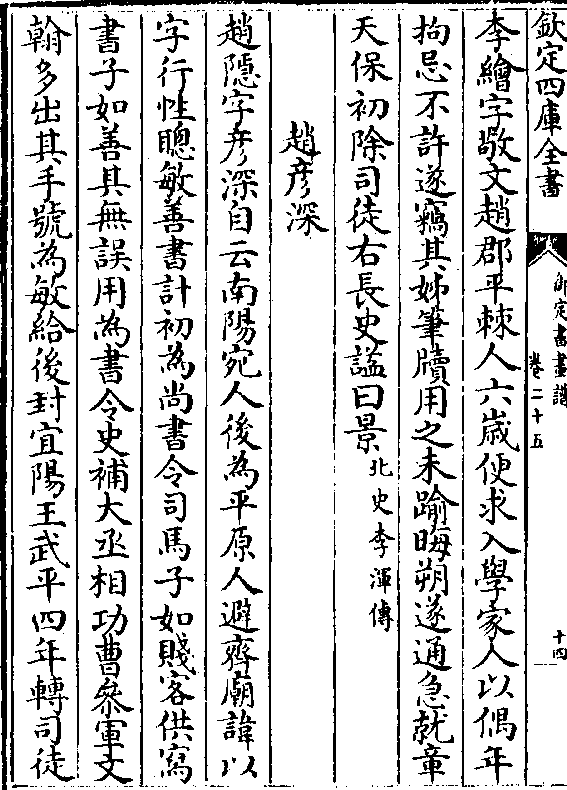 欽定四庫全書
御定書畫譜
卷二十五
十四
李繪字敬文趙郡平棘人六嵗便求入學家人以偶年
拘忌不許遂竊其姊筆牘用之未踰晦朔遂通急就章
天保初除司徒右長史謚曰景北史李渾傳
趙彦深
趙隱字彦深自云南陽宛人後為平原人避齊廟諱以
字行性聰敏善書計初為尚書令司馬子如賤客供寫
書子如善其無誤用為書令史補大丞相功曹叅軍文
翰多出其手號為敏給後封宜陽王武平四年轉司徒